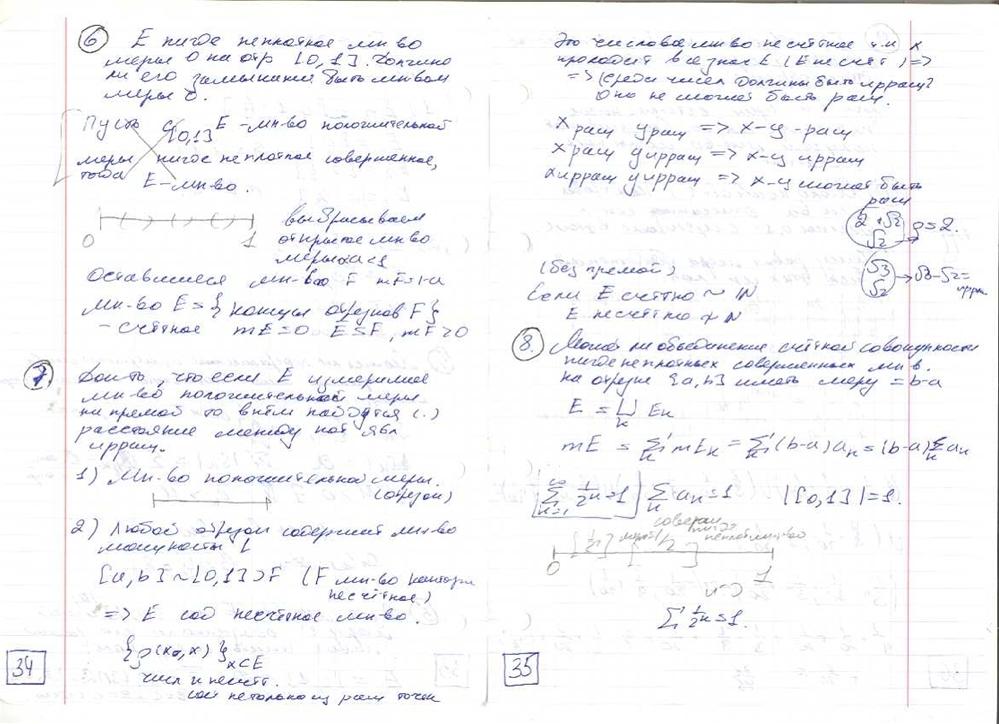 6 E нигде неплотное мн-во
меры 0 на отр [0,1]. Должно
ли его замыкание быть мн-вом
меры 0.
Пусть [0,1] E - мн-во положительной
меры нигде неплотное совершенное,
тогда E - мн-во.
0 1 выбрасываем
открытое мн-во
меры α<1
Оставшиеся мн-во F mF=1-α
мн-во E = { концы отрезков F }
- счётное mE=0 E⊆F, mF>0
7 Док-ть, что если E измеримое
мн-во положительной меры
на прямой то в нём найдутся (.)
расстояние между кот явл
иррац.
1) Мн-во положительной меры.
(отрезок)
2) Любой отрезок содержит мн-во
мощности C
[a,b]~[0,1]⊃F (F мн-во кантора
несчётное)
=> E сод несчётное мн-во.
{ρ(x₀,x)}x⊂E
числ и несчт.
сост не только из рац точек
34
Это числовое мн-во несчётное т.к x
проходит все знач E (E несчёт) =>
=> (среди чисел должны быть иррац)
Оно не может быть рац.
x рац y рац => x-y - рац
x рац y иррац => x-y иррац
x иррац y иррац => x-y может быть
рац
2+√2
√2 → ρ=2.
√3
√2 → √3-√2=
иррац
(без прямой)
Если E счётно ~ N
E несчётно ≁ N
8. Может ли объединение счётной совокупности
нигде неплотных совершенных мн-в.
на отрезке [a,b] иметь меру = b-a
E = ⋃ₖ Eₖ
mE = ∑ₖ mEₖ = ∑ₖ (b-a)aₙ = (b-a)∑ₖ aₙ
∑ₙ₌₁^∞ 1/2ⁿ=1 ∑ₙ aₙ=1 |[0,1]|=1.
соверш
нигде
неплот мн-во
0 1
∑ 1/2ⁿ=1.
35